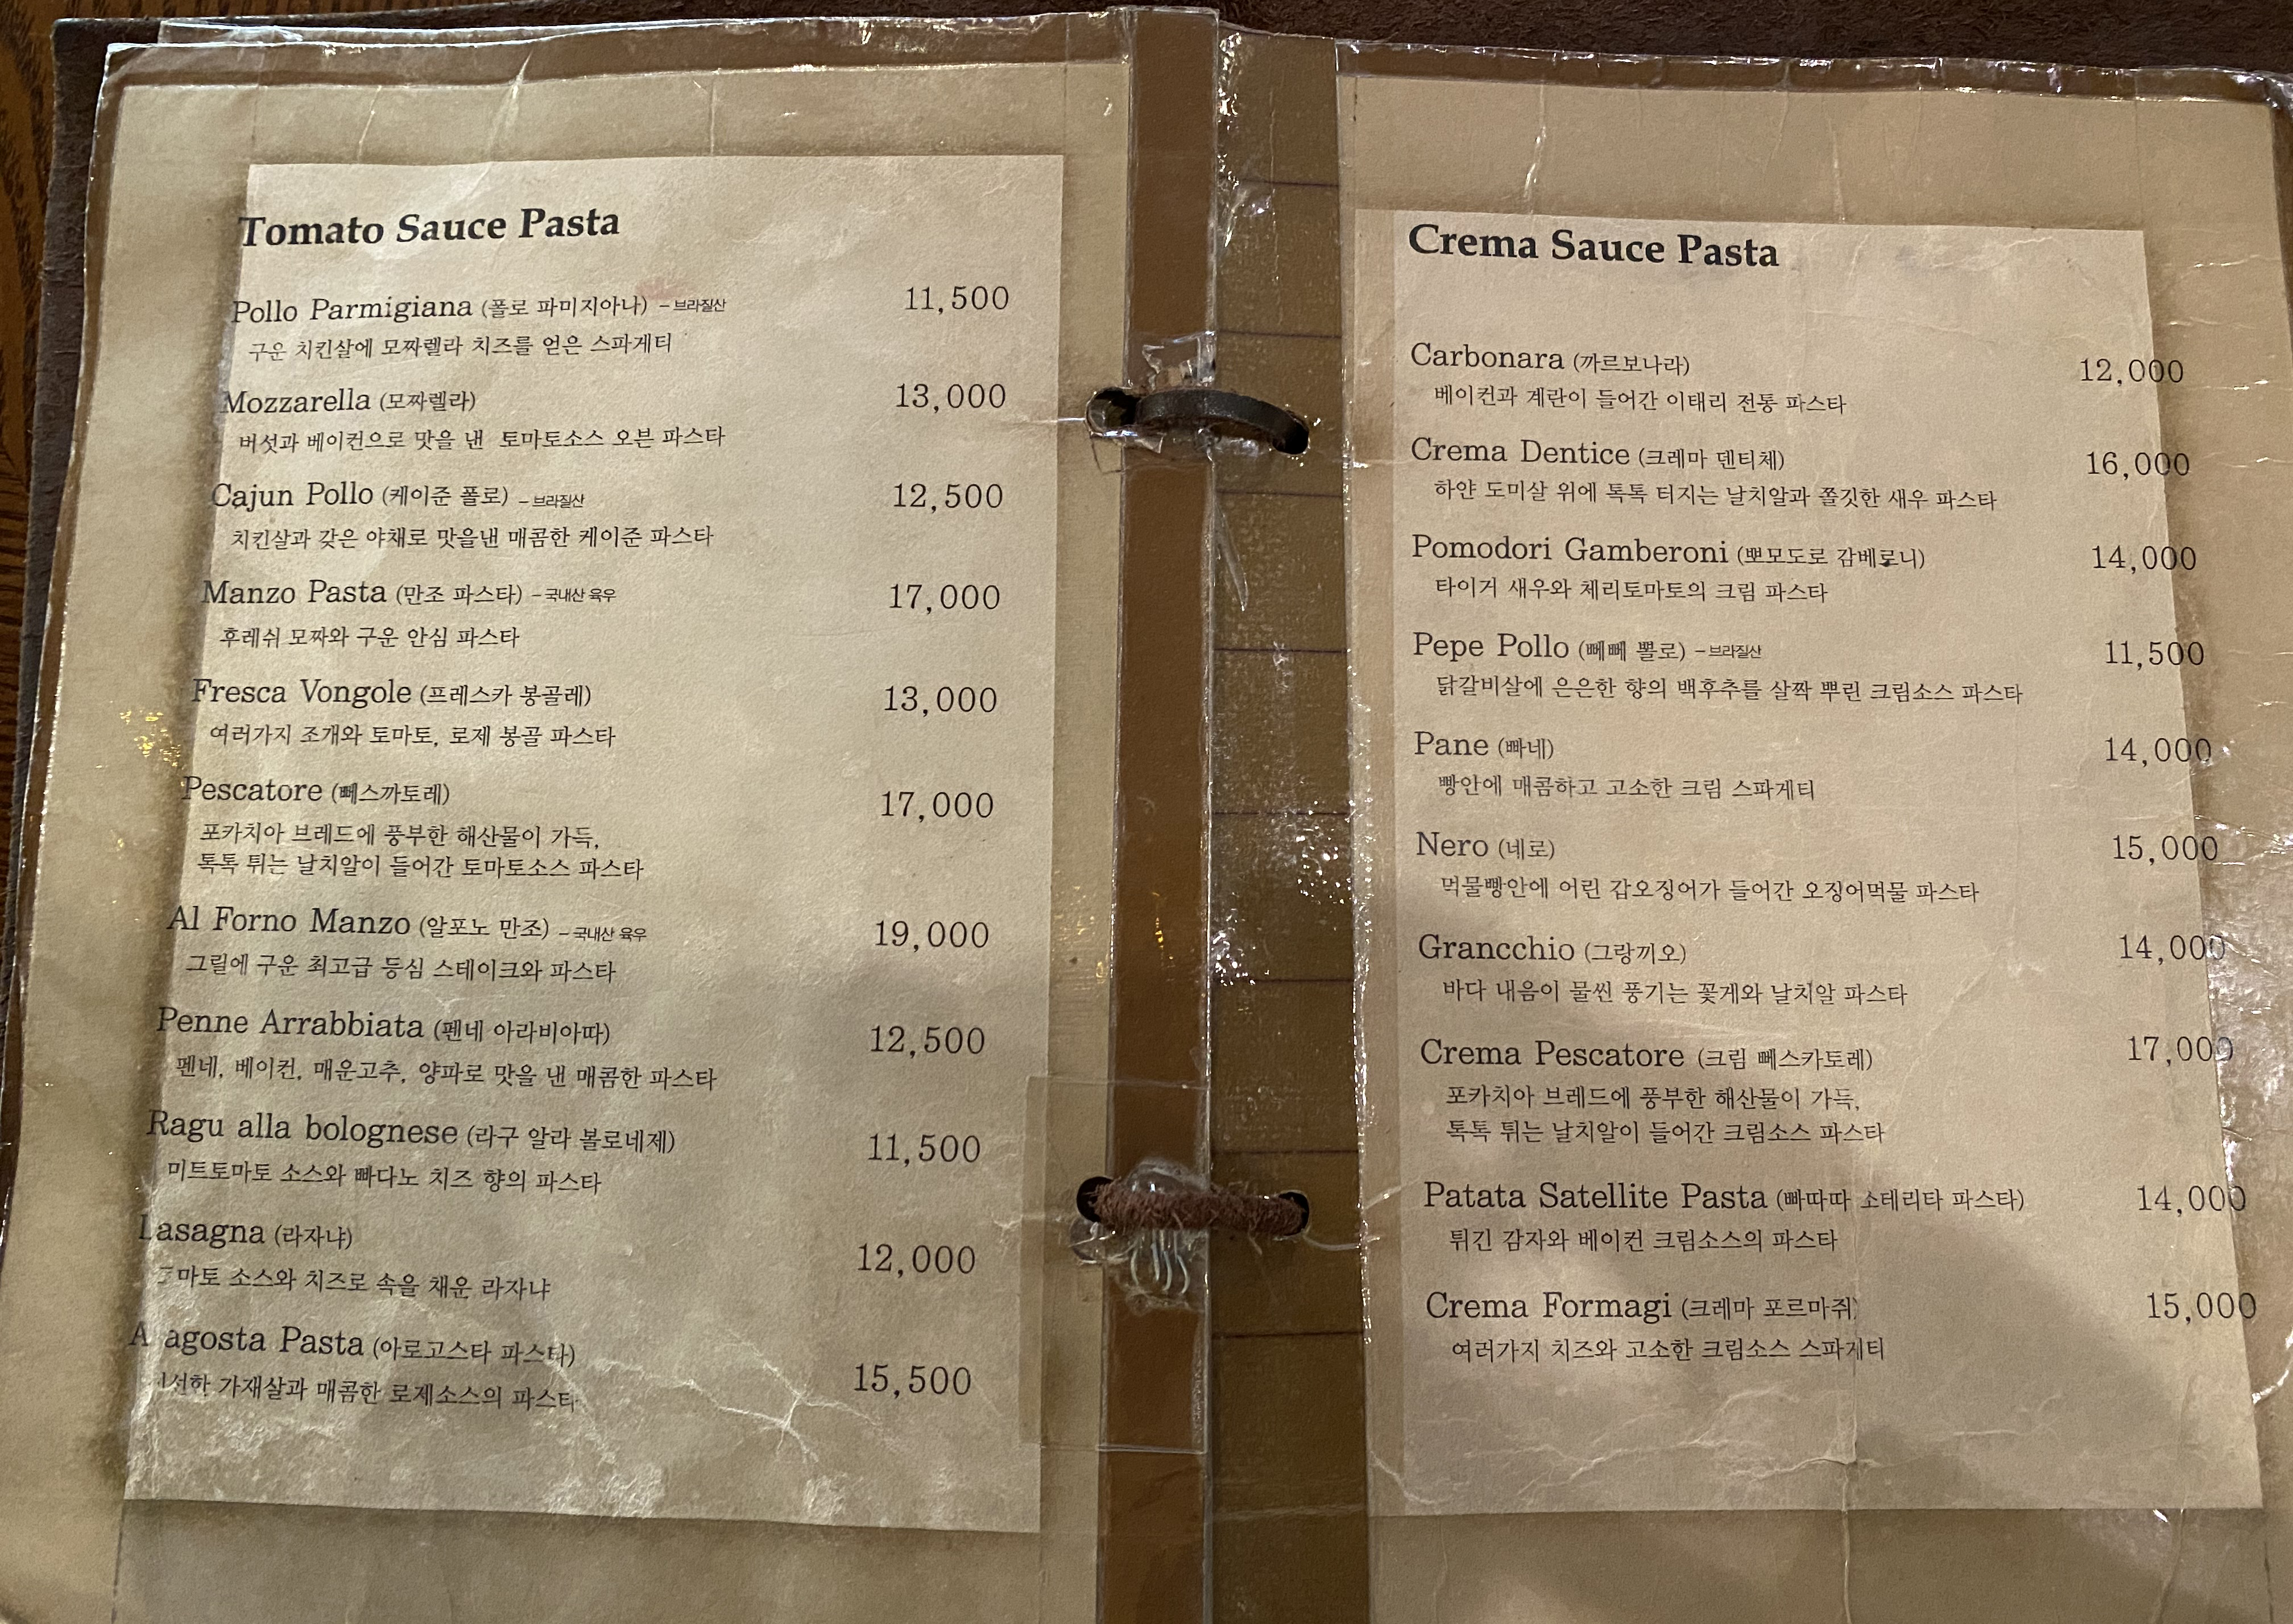 Tomato Sauce Pasta
Pollo Parmigiana (폴로 파미지아나) - 브라질산 11,500
구운 치킨살에 모짜렐라 치즈를 얹은 스파게티
Mozzarella (모짜렐라) 13,000
버섯과 베이컨으로 맛을 낸 토마토소스 오븐 파스타
Cajun Pollo (케이준 폴로) - 브라질산 12,500
치킨살과 갖은 야채로 맛을낸 매콤한 케이준 파스타
Manzo Pasta (만조 파스타) - 국내산 육우 17,000
후레쉬 모짜와 구운 안심 파스타
Fresca Vongole (프레스카 봉골레) 13,000
여러가지 조개와 토마토, 로제 봉골 파스타
Pescatore (뻬스까토레) 17,000
포카치아 브레드에 풍부한 해산물이 가득,
톡톡 튀는 날치알이 들어간 토마토소스 파스타
Al Forno Manzo (알포노 만조) - 국내산 육우 19,000
그릴에 구운 최고급 등심 스테이크와 파스타
Penne Arrabbiata (펜네 아라비아따) 12,500
펜네, 베이컨, 매운고추, 양파로 맛을 낸 매콤한 파스타
Ragu alla bolognese (라구 알라 볼로네제) 11,500
미트토마토 소스와 빠다노 치즈 향의 파스타
Lasagna (라자냐) 12,000
소스와 치즈로 속을 채운 라자냐
Pasta (아로고스타 파스타) 15,500
가재살과 매콤한 로제소스의 파스타
Crema Sauce Pasta
Carbonara (까르보나라) 12,000
베이컨과 계란이 들어간 이태리 전통 파스타
Crema Dentice (크레마 덴티체) 16,000
하얀 도미살 위에 톡톡 터지는 날치알과 쫄깃한 새우 파스타
Pomodori Gamberoni (뽀모도로 감베로니) 14,000
타이거 새우와 체리토마토의 크림 파스타
Pepe Pollo (뻬뻬 뽈로) - 브라질산 11,500
닭갈비살에 은은한 향의 백후추를 살짝 뿌린 크림소스 파스타
Pane (빠네) 14,000
빵안에 매콤하고 고소한 크림 스파게티
Nero (네로) 15,000
먹물빵안에 어린 갑오징어가 들어간 오징어먹물 파스타
Grancchio (그랑끼오) 14,000
바다 내음이 물씬 풍기는 꽃게와 날치알 파스타
Crema Pescatore (크림 뻬스카토레) 17,000
포카치아 브레드에 풍부한 해산물이 가득,
톡톡 튀는 날치알이 들어간 크림소스 파스타
Patata Satellite Pasta (빠따따 소테리타 파스타) 14,000
튀긴 감자와 베이컨 크림소스의 파스타
Crema Formagi (크레마 포르마쥐) 15,000
여러가지 치즈와 고소한 크림소스 스파게티